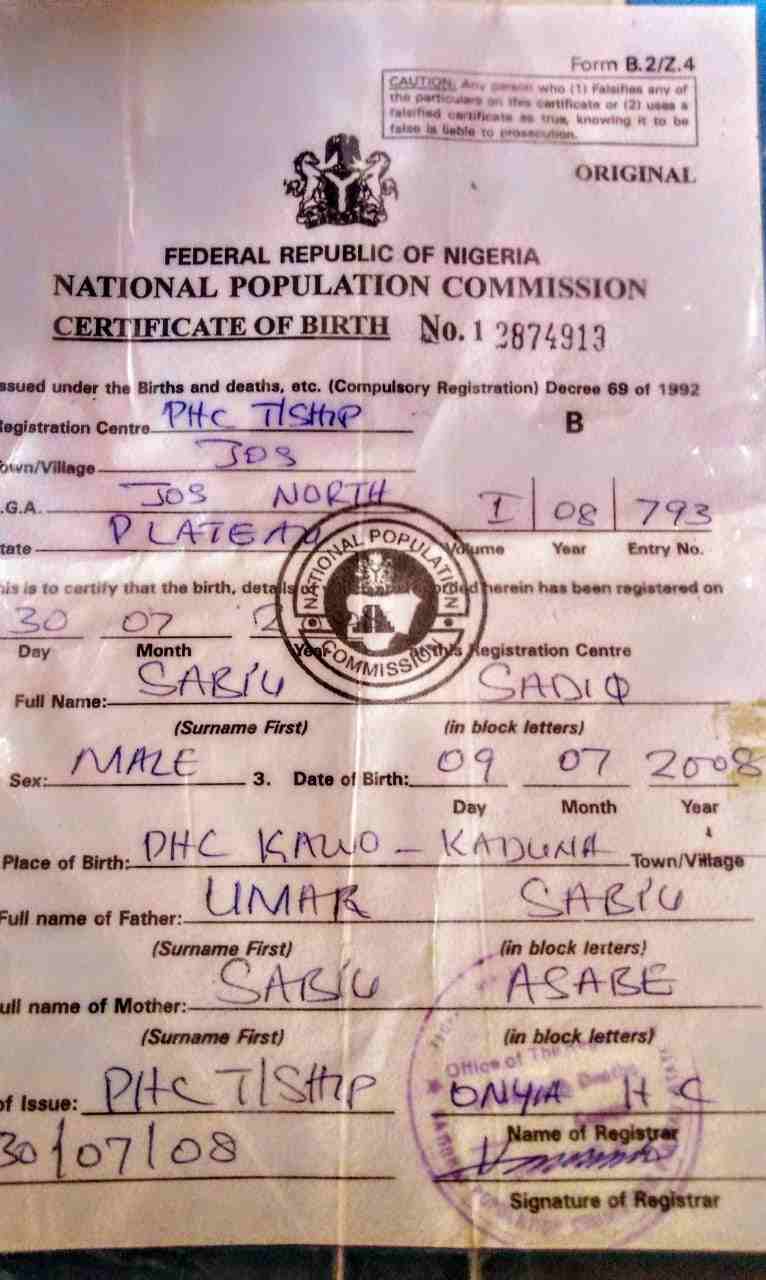 Form B.2/Z.4
CAUTION: Any person who (1) Falsifies any of
the particulars on this certificate or (2) uses a
falsified certificate as true, knowing it to be
false is liable to prosecution.
ORIGINAL
FEDERAL REPUBLIC OF NIGERIA
NATIONAL POPULATION COMMISSION
CERTIFICATE OF BIRTH No. 1 2874913
ssued under the Births and deaths, etc. (Compulsory Registration) Decree 69 of 1992
egistration Centre PHC T/SHIP B
own/Village JOS
.G.A. JOS NORTH
tate PLATEAU
I 08 793
Volume Year Entry No.
NATIONAL POPULATION COMMISSION
his is to certify that the birth, details of herein has been registered on
30 07 2
Day Month Year at this Registration Centre
Full Name: SABIU SADIQ
(Surname First) (in block letters)
Sex: MALE 3. Date of Birth: 09 07 2008
Day Month Year
Place of Birth: PHC KAWO - KADUNA Town/Village
Full name of Father: UMAR SABIU
(Surname First) (in block letters)
ull name of Mother: SABIU ASABE
(Surname First) (in block letters)
of Issue: PHC T/SHIP ONYIA H C
Office of The
Name of Registrar
30/07/08
Signature of Registrar